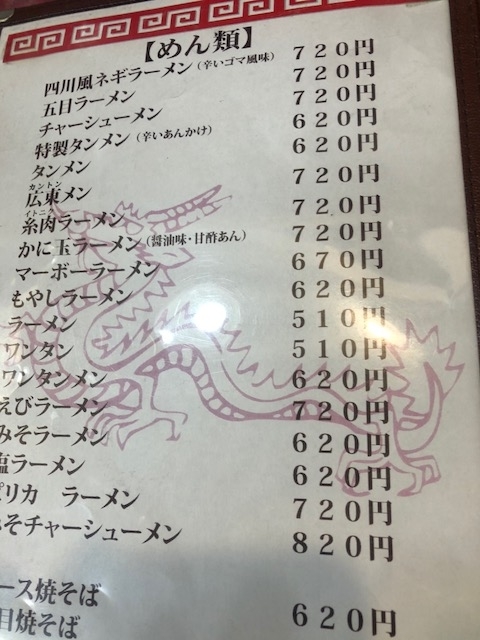 【めん類】
四川風ネギラーメン(辛いゴマ風味) 720円
五目ラーメン 720円
チャーシューメン 720円
特製タンメン(辛いあんかけ) 620円
タンメン 620円
カントン
広東メン 720円
イトニク
糸肉ラーメン 720円
かに玉ラーメン(醤油味・甘酢あん) 720円
マーボーラーメン 670円
もやしラーメン 620円
ラーメン 510円
ワンタン 510円
ワンタンメン 620円
えびラーメン 720円
みそラーメン 620円
塩ラーメン 620円
ピリカ ラーメン 720円
みそチャーシューメン 820円
ース焼そば 620円
目焼そば